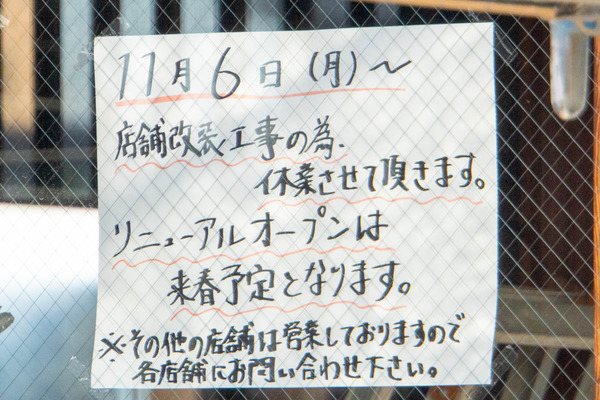 11月6日(月)～
店舗改装工事の為、
休業させて頂きます。
リニューアルオープンは
来春予定となります。
※その他の店舗は営業しておりますので
各店舗にお問い合わせ下さい。